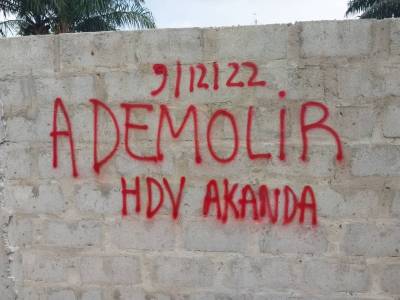 9/12/22
A DEMOLIR
HDV AKANDA